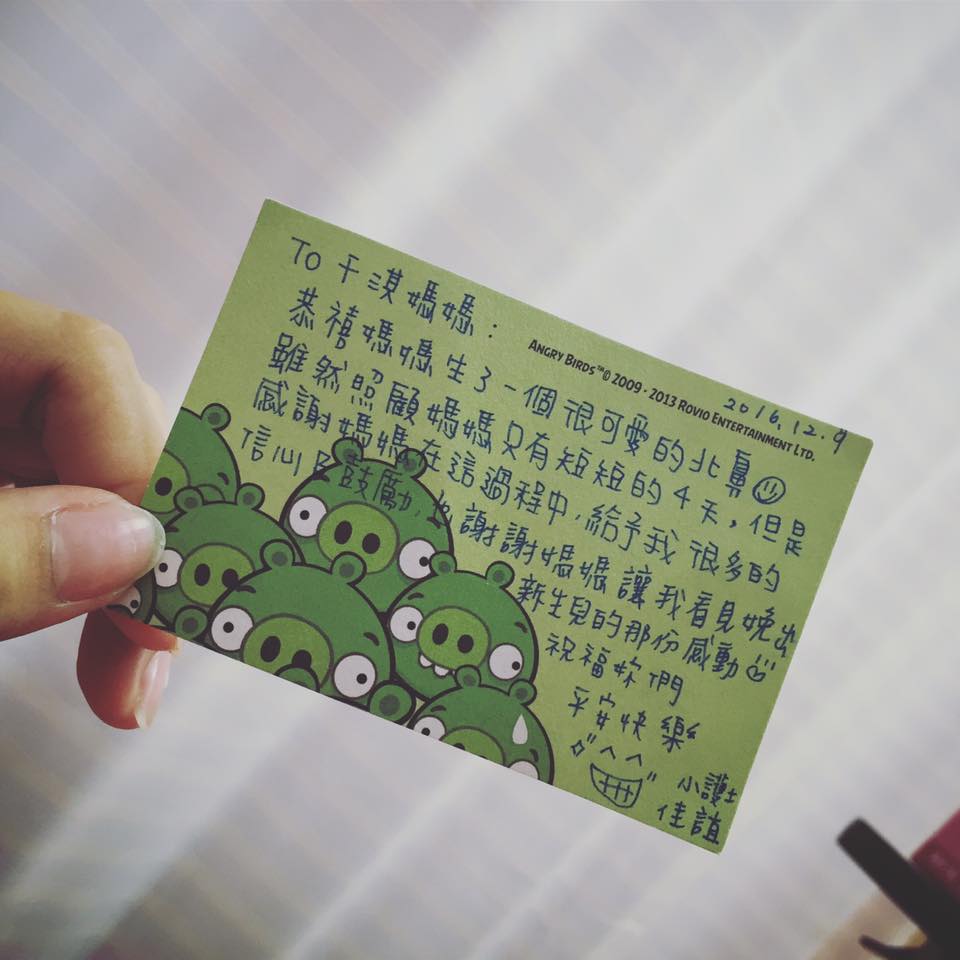 To 于淇媽媽：
ANGRY BIRDS™© 2009 - 2013 ROVIO ENTERTAINMENT LTD.
2016.12.9
恭禧媽媽生了一個很可愛的北鼻
雖然照顧媽媽只有短短的4天，但是
感謝媽媽在這過程中，給予我很多的
信心及鼓勵，也謝謝媽媽讓我看見娩出
新生兒的那份感動
祝福妳們
平安快樂
小護士
佳誼